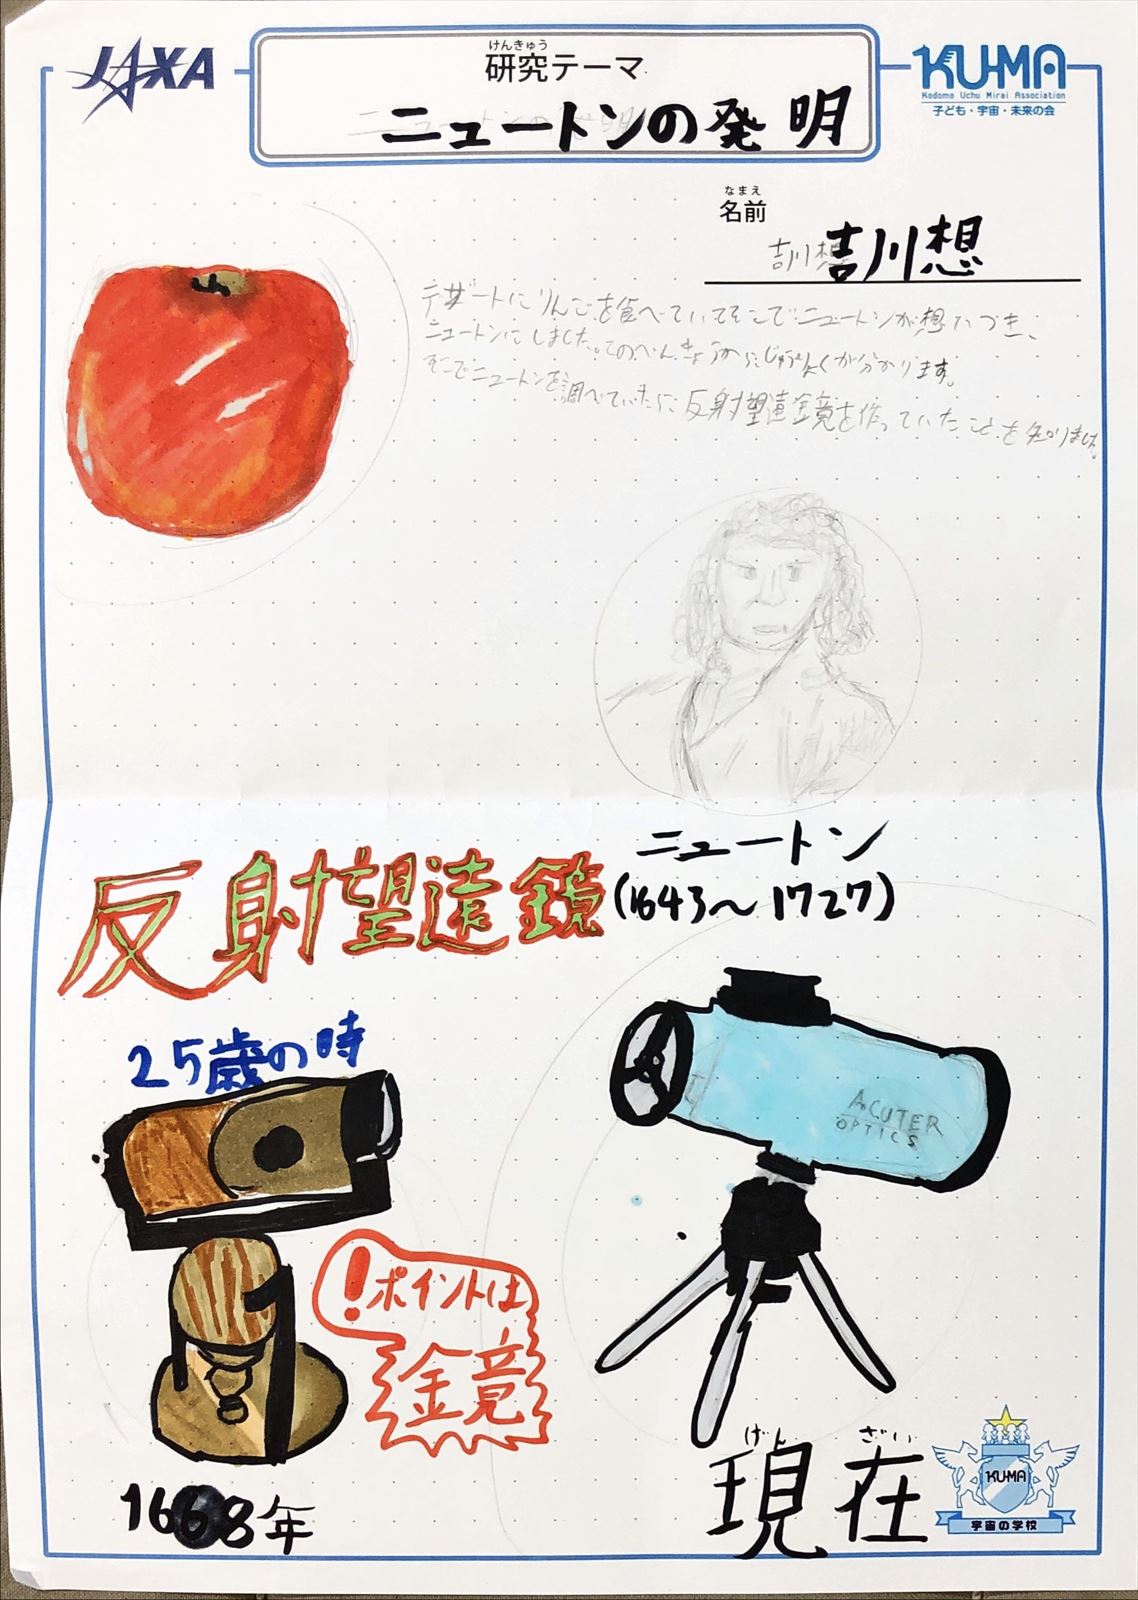 JAXA
けんきゅう
研究テーマ
KU-MA
Kodomo Uchu Mirai Association
子ども・宇宙・未来の会
ニュートンの発明
なまえ
名前
吉川想
デザートにりんごを食べていてそこでニュートンが想いつき、
ニュートンにしました。このべんきょうから、じゅうりょくが分かります。
そこでニュートンを調べていたら、反射望遠鏡を作っていたことを分かりました。
ニュートン
(1643〜1727)
反射望遠鏡
25歳の時
ACUTER
OPTICS
!ポイントは
鏡
1668年
げんざい
現在
KU-MA
宇宙の学校